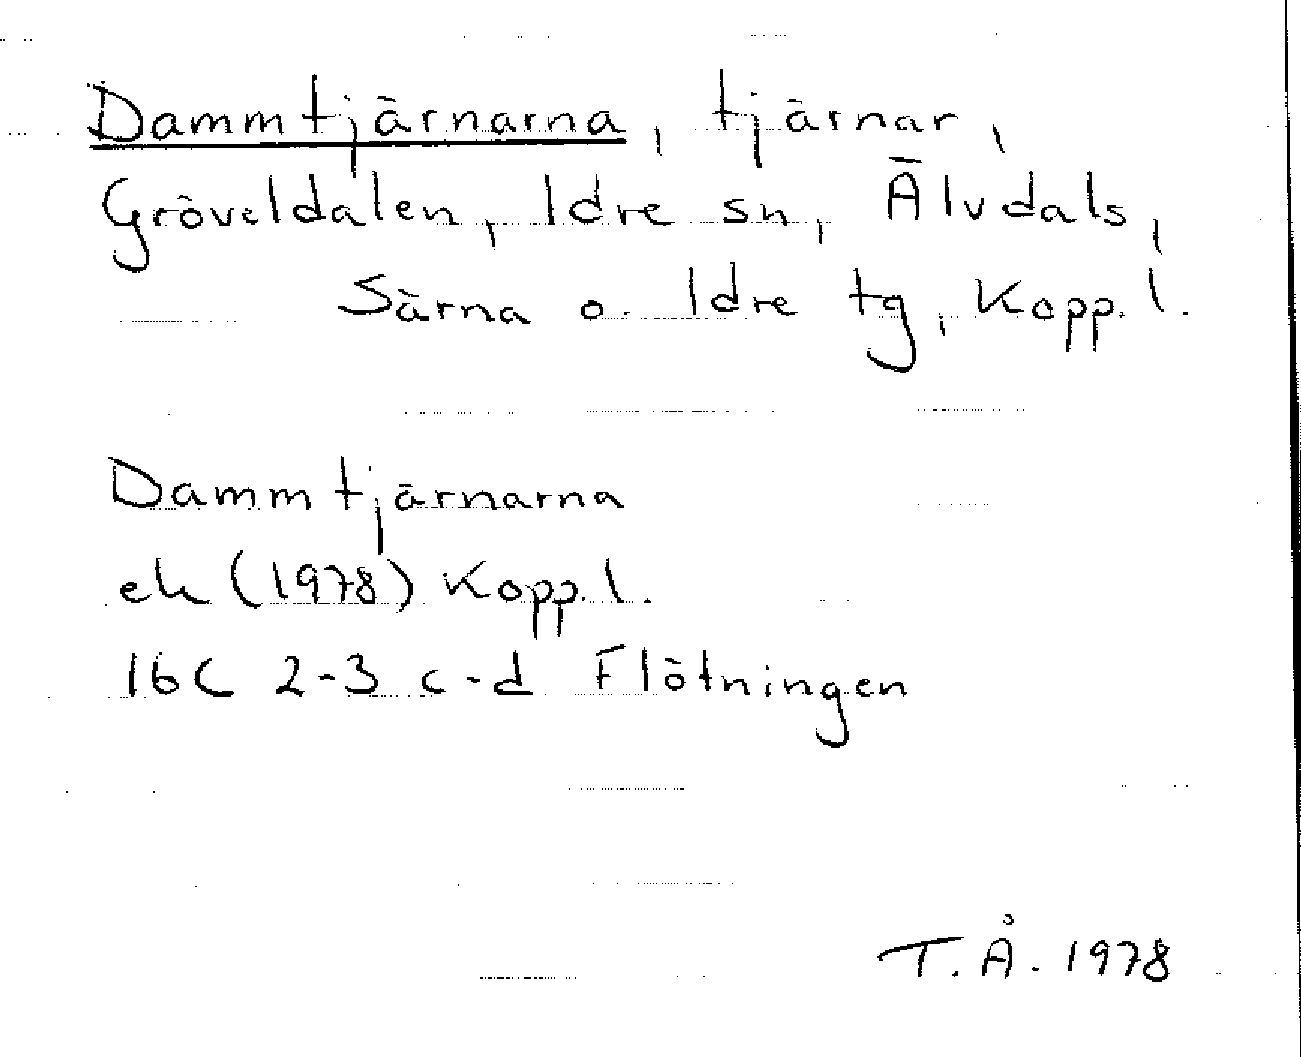 Dammtjärnarna, tjärnar,
Gröveldalen, Idre sn, Älvdals,
Särna o. Idre tg, Kopp. l.
Dammtjärnarna
ek (1978) Kopp. l.
16C 2-3 c-d Flötningen
T. Å. 1978